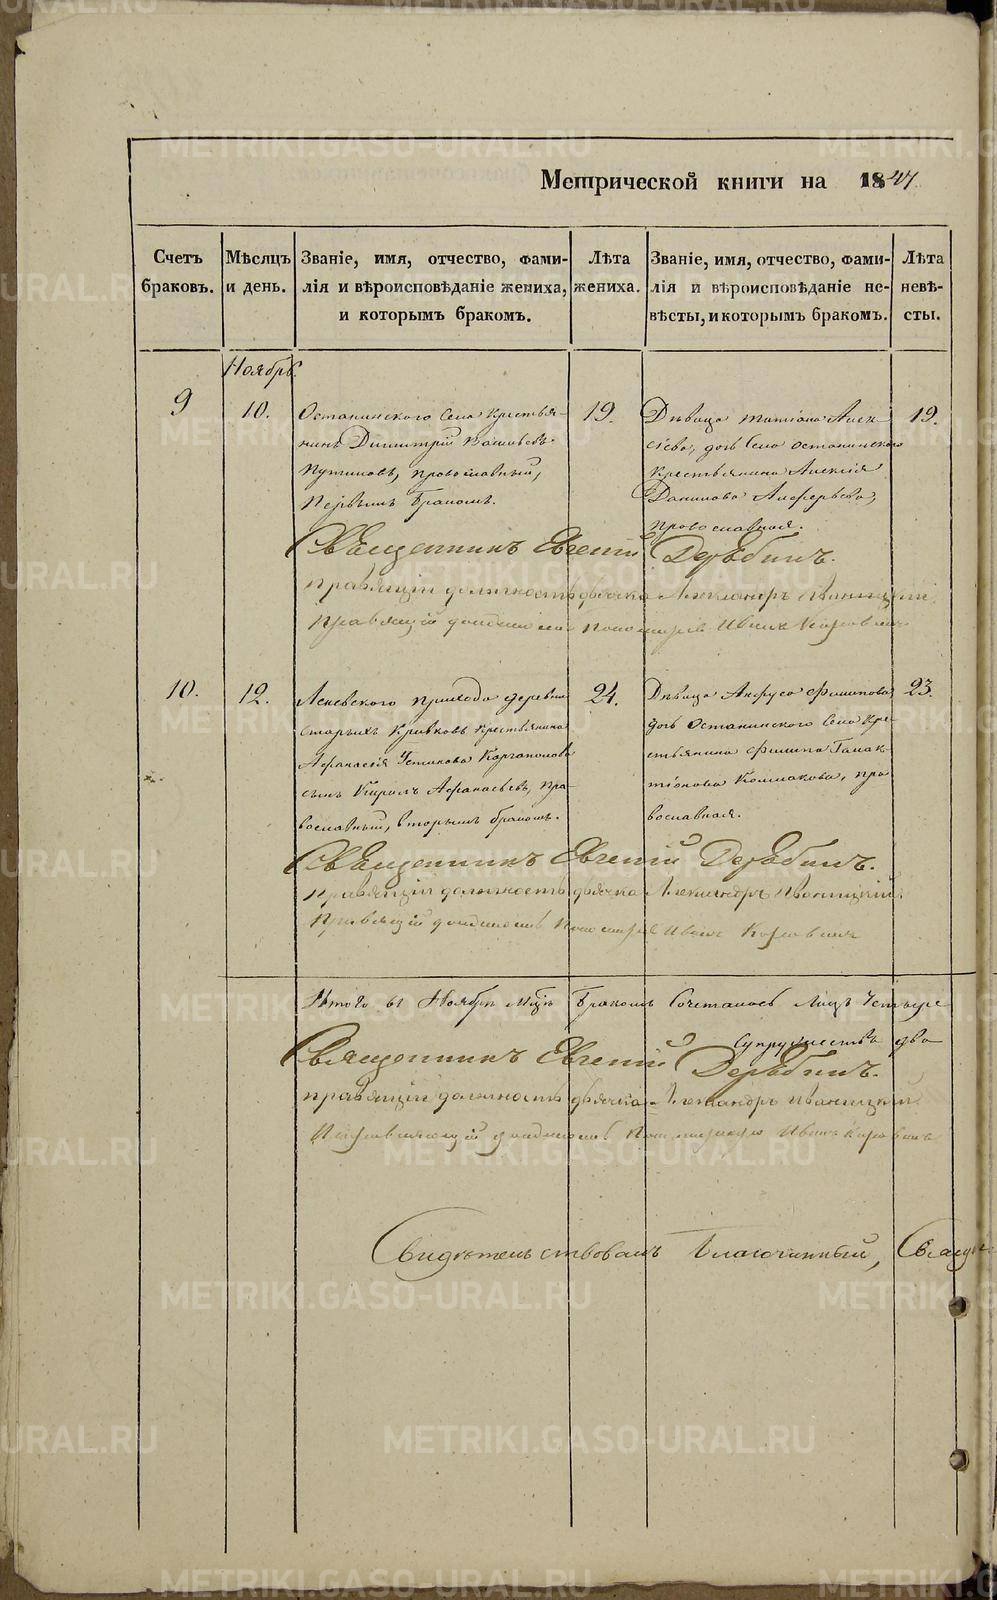 Метрической книги на 1847
Счетъ браковъ.
Мѣсяцъ и день.
Званіе, имя, отчество, фами-
лія и вѣроисповѣданіе жениха,
и которымъ бракомъ.
Лѣта жениха.
Званіе, имя, отчество, фами-
лія и вѣроисповѣданіе не-
вѣсты, и которымъ бракомъ.
Лѣта невѣ-
сты.
Ноябрь.
9
10.
Останинского Села крестья-
нинъ Димитрій
православный,
Первымъ бракомъ.
19.
Дѣвица Татіана Алек-
сіева, дочь Села Останинского
крестьянина Алексія
Данилова Алферьева,
православная.
19.
Священникъ Евгеній Дерябинъ.
правящій должность дьячка Александръ Иваницкій
правящій должность пономаря Иванъ
10.
12.
Леневского прихода деревни
старыхъ Кривковъ крестьянина
Афанасія Устинова Каргаполова
сынъ Кирилъ Афанасьевъ, пра-
вославный, вторымъ бракомъ.
24.
Дѣвица Анфуса Филипова
дочь Останинского Села кре-
стьянина Филипа Галак-
тіонова Колмакова, пра
вославная.
23.
Священникъ Евгеній Дерябинъ.
правящій должность дьячка Александръ Иваницкій
правящій должность пономаря Иванъ
Итого въ Ноябрѣ м-цѣ бракомъ сочеталось лицъ четыре
супружествъ два
Священникъ Евгеній Дерябинъ.
правящій должность дьячка Александръ Иваницкій
должность Иванъ
Свидѣтельствовалъ Благочинный,
METRIKI.GASO-URAL.RU